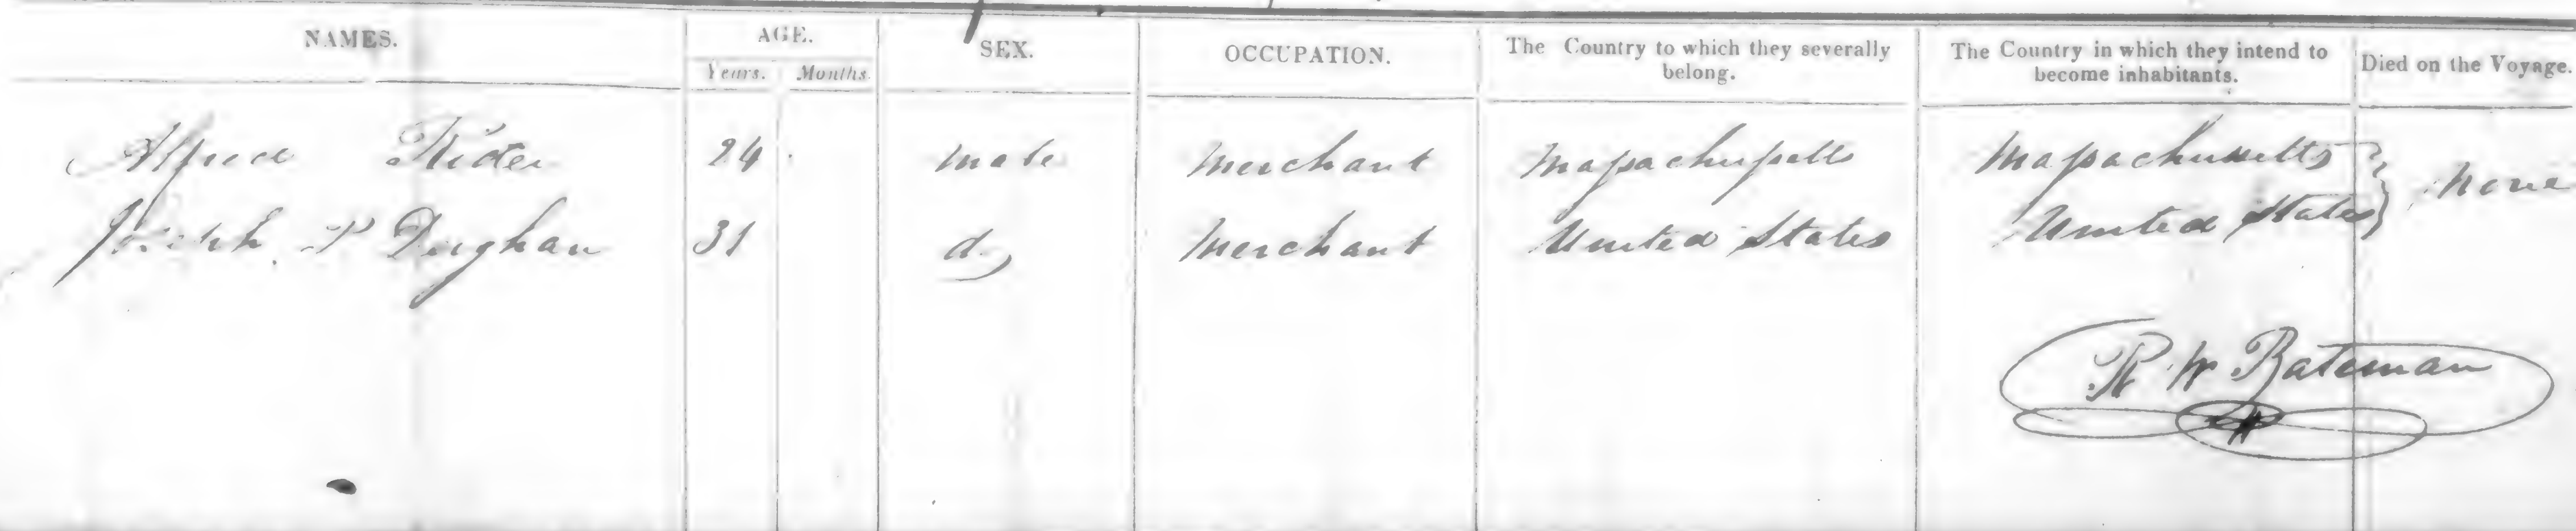 NAMES. AGE. SEX. OCCUPATION. The Country to which they severally belong. The Country in which they intend to become inhabitants. Died on the Voyage.
Years. Months.
Alfred Rider 24 male Merchant Massachussetts Massachussetts None
Joseph P 31 do Merchant United States United States
R W Bateman